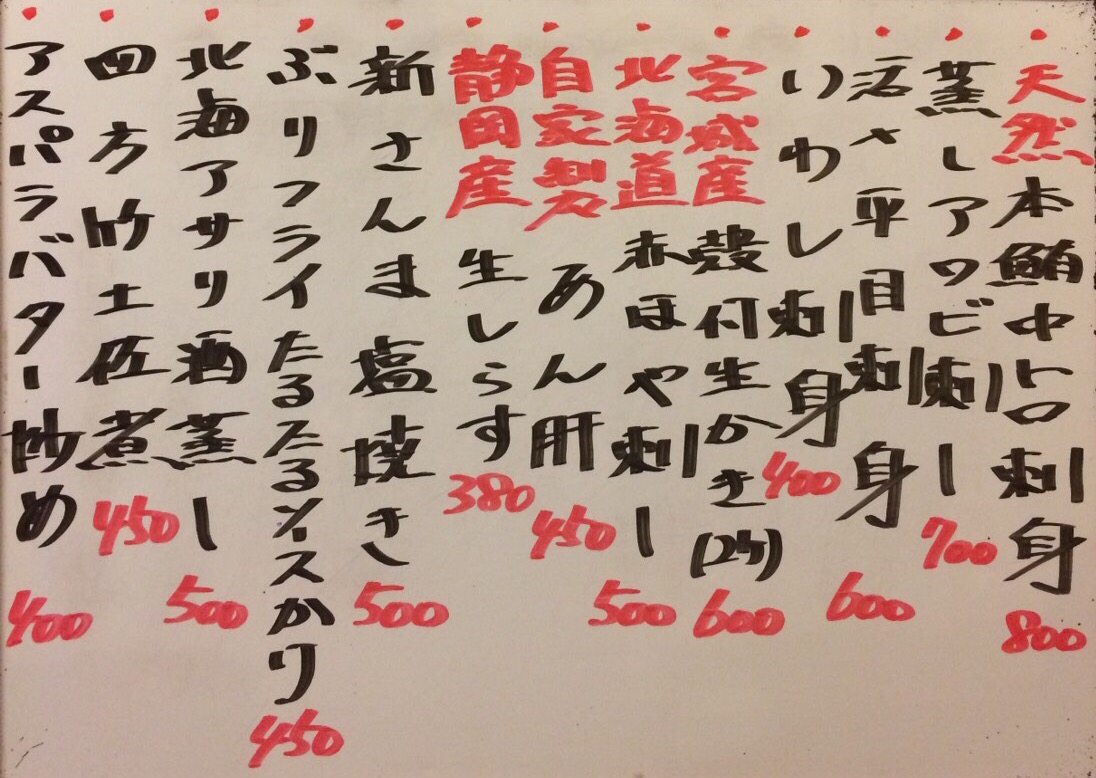 天然本鮪中トロ刺身 800
蒸しアワビ刺し 700
活〆平目刺身 600
いわし刺身 400
宮城産殻付生かき(2ケ) 600
北海道赤ほや刺し 500
自家製あん肝 450
静岡産生しらす 380
新さんま塩焼き 500
ぶりフライたるたるソースかり 450
北海アサリ酒蒸し 500
四方竹土佐煮 450
アスパラバター炒め 400